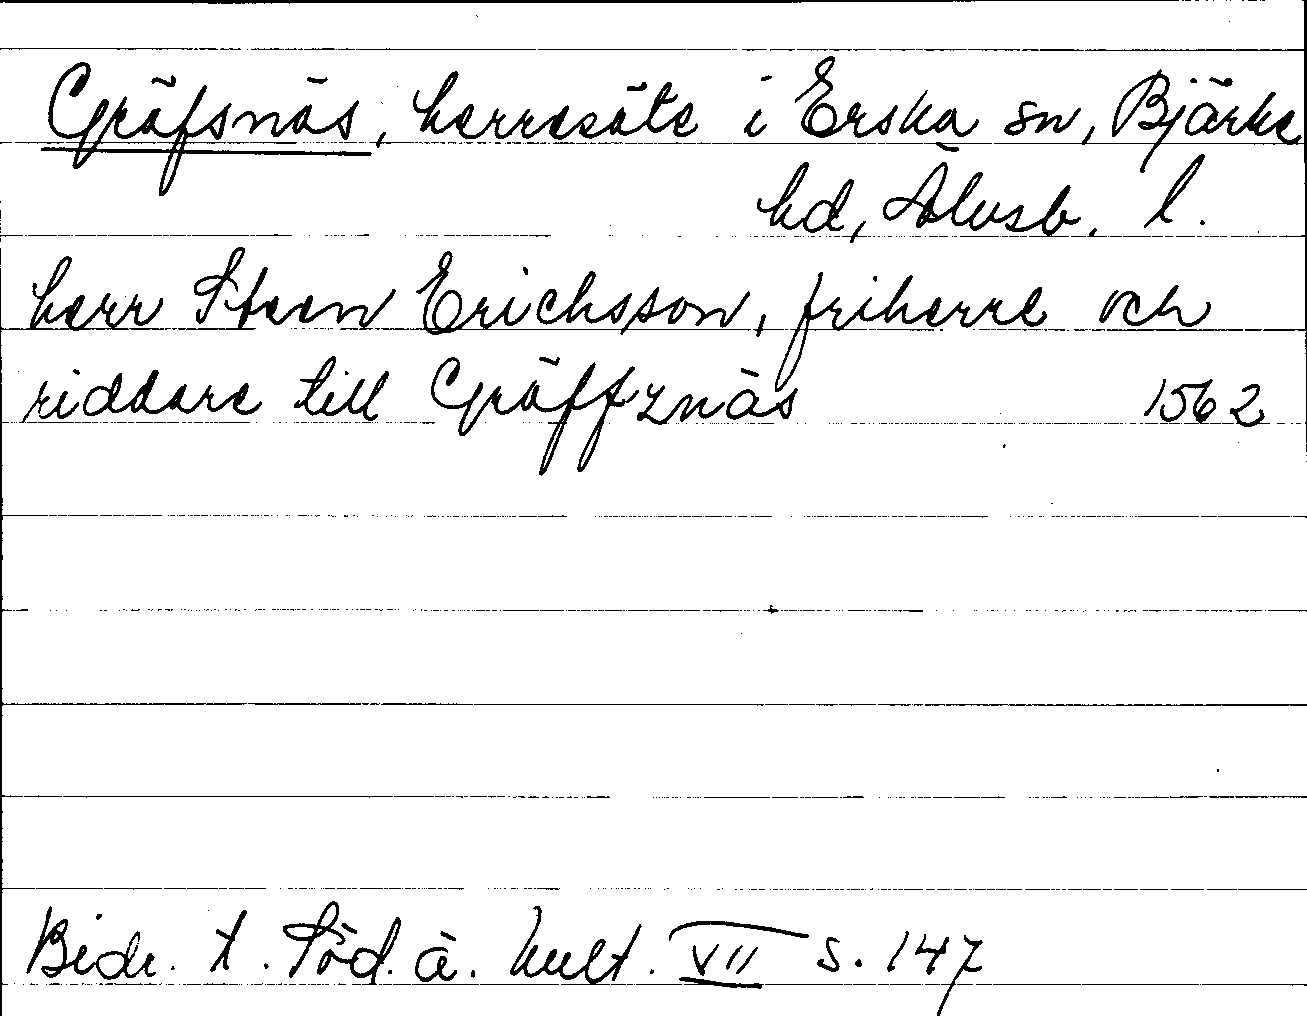 Gräfsnäs, herresäte i Erska sn, Bjärke
hd, Älvsb. l.
herr Steen Erichsson, friherre och
riddare till Gräffznäs 1562
Bidr. t. Söd. ä. kult. VII s. 147